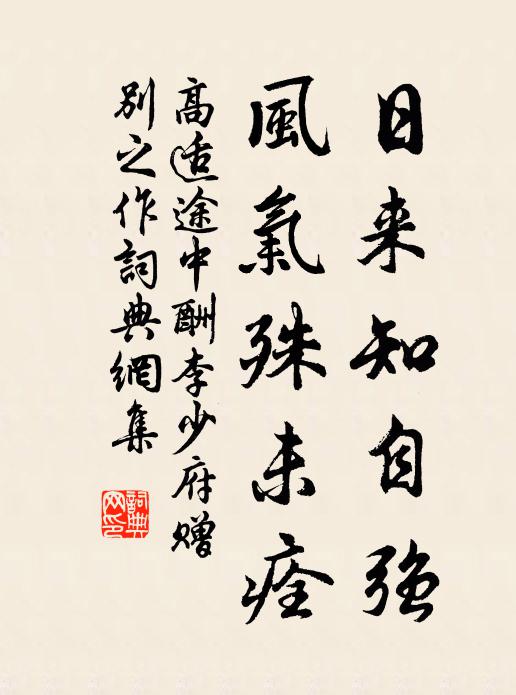 日来知自强
風氣殊未痊
高适途中酬李少府赠
别之作詞典網集
詞典
网印